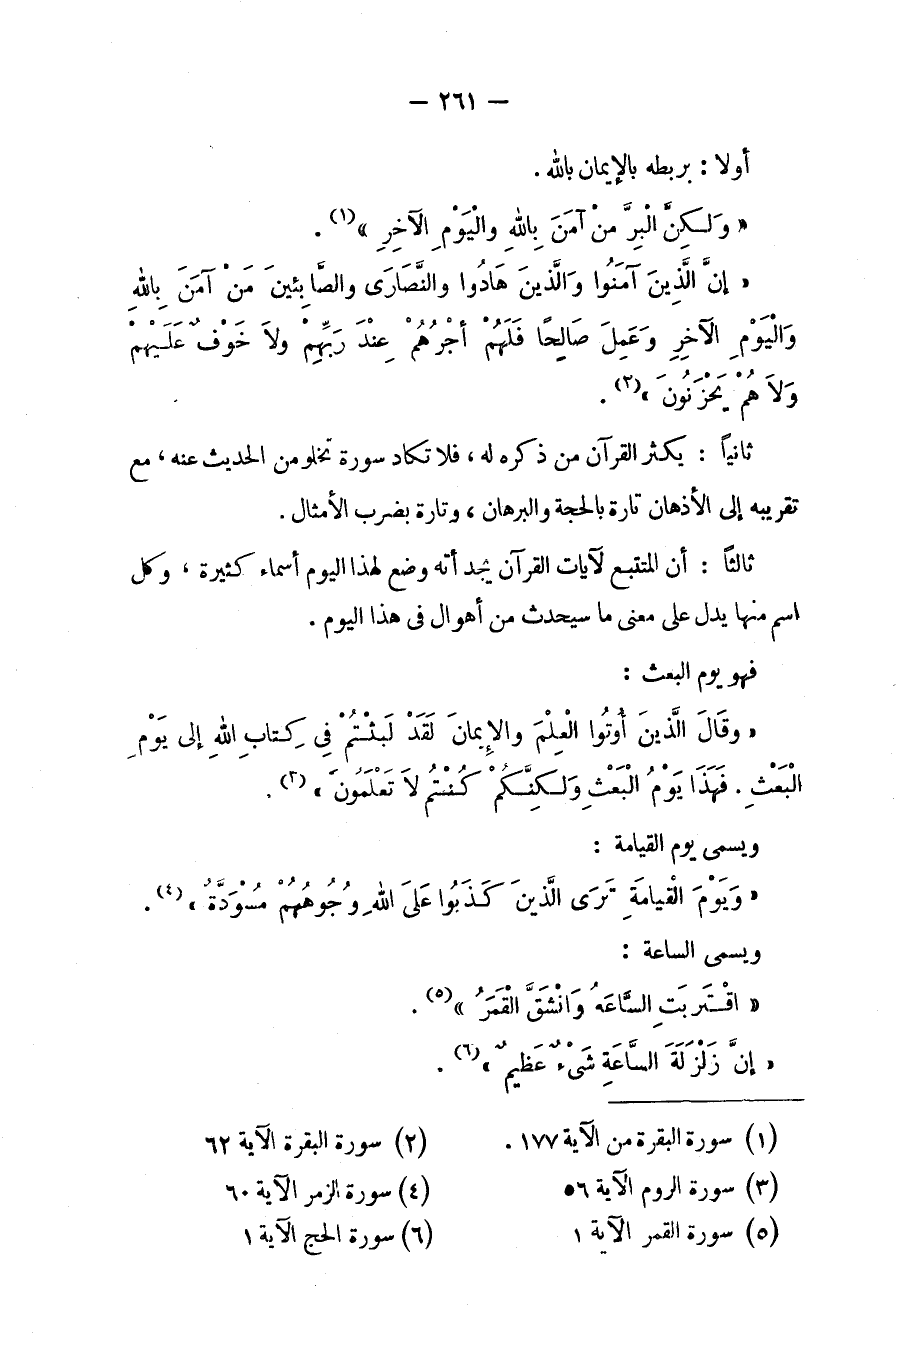 — ٢٦١ —
أولا : بربطه بالإيمان بالله .
« وَلٰـكِنَّ الْبِرَّ مَنْ آمَنَ بِاللهِ والْيَوْمِ الآخِرِ »(١) .
« إنَّ الَّذِينَ آمَنُوا وَالَّذِينَ هَادُوا والنَّصَارَى والصَّابِئينَ مَنْ آمَنَ بِاللهِ
وَالْيَوْمِ الآخِرِ وَعَمِلَ صَالِحًا فَلَهُمْ أجْرُهُمْ عِنْدَ رَبِّهِمْ ولاَ خَوْفٌ عَلَيْهِمْ
وَلاَ هُمْ يَحْزَنُونَ »(٢) .
ثانياً : يكثر القرآن من ذكره له ، فلا تكاد سورة تخلو من الحديث عنه ، مع
تقريبه إلى الأذهان تارة بالحجة والبرهان ، وتارة بضرب الأمثال .
ثالثاً : أن المتتبع لآيات القرآن يجد أنه وضع لهذا اليوم أسماء كثيرة ، وكل
اسم منها يدل على معنى ما سيحدث من أهوال فى هذا اليوم .
فهو يوم البعث :
« وقَالَ الَّذِينَ أُوتُوا الْعِلْمَ والإِيمانَ لَقَدْ لَبِثْتُمْ فِى كِتابِ اللهِ إلى يَوْمِ
الْبَعْثِ . فَهَذَا يَوْمُ الْبَعْثِ وَلـكِنَّـكُمْ كُنْتُمْ لاَ تَعْلَمُونَ »(٣) .
ويسمى يوم القيامة :
« وَيَوْمَ الْقيامَةِ تَرَى الَّذِينَ كَذَبُوا عَلَى اللهِ وُجُوهُهُمْ مُسْوَدَّةٌ »(٤) .
ويسمى الساعة :
« اقْتَرَبَتِ السَّاعَةُ وَانْشَقَّ الْقَمَرُ »(٥) .
« إنَّ زَلْزَلَةَ السَّاعَةِ شَىْءٌ عَظِيمٌ »(٦) .
(١) سورة البقرة من الآية ١٧٧ . (٢) سورة البقرة الآية ٦٢
(٣) سورة الروم الآية ٥٦ (٤) سورة الزمر الآية ٦٠
(٥) سورة القمر الآية ١ (٦) سورة الحج الآية ١